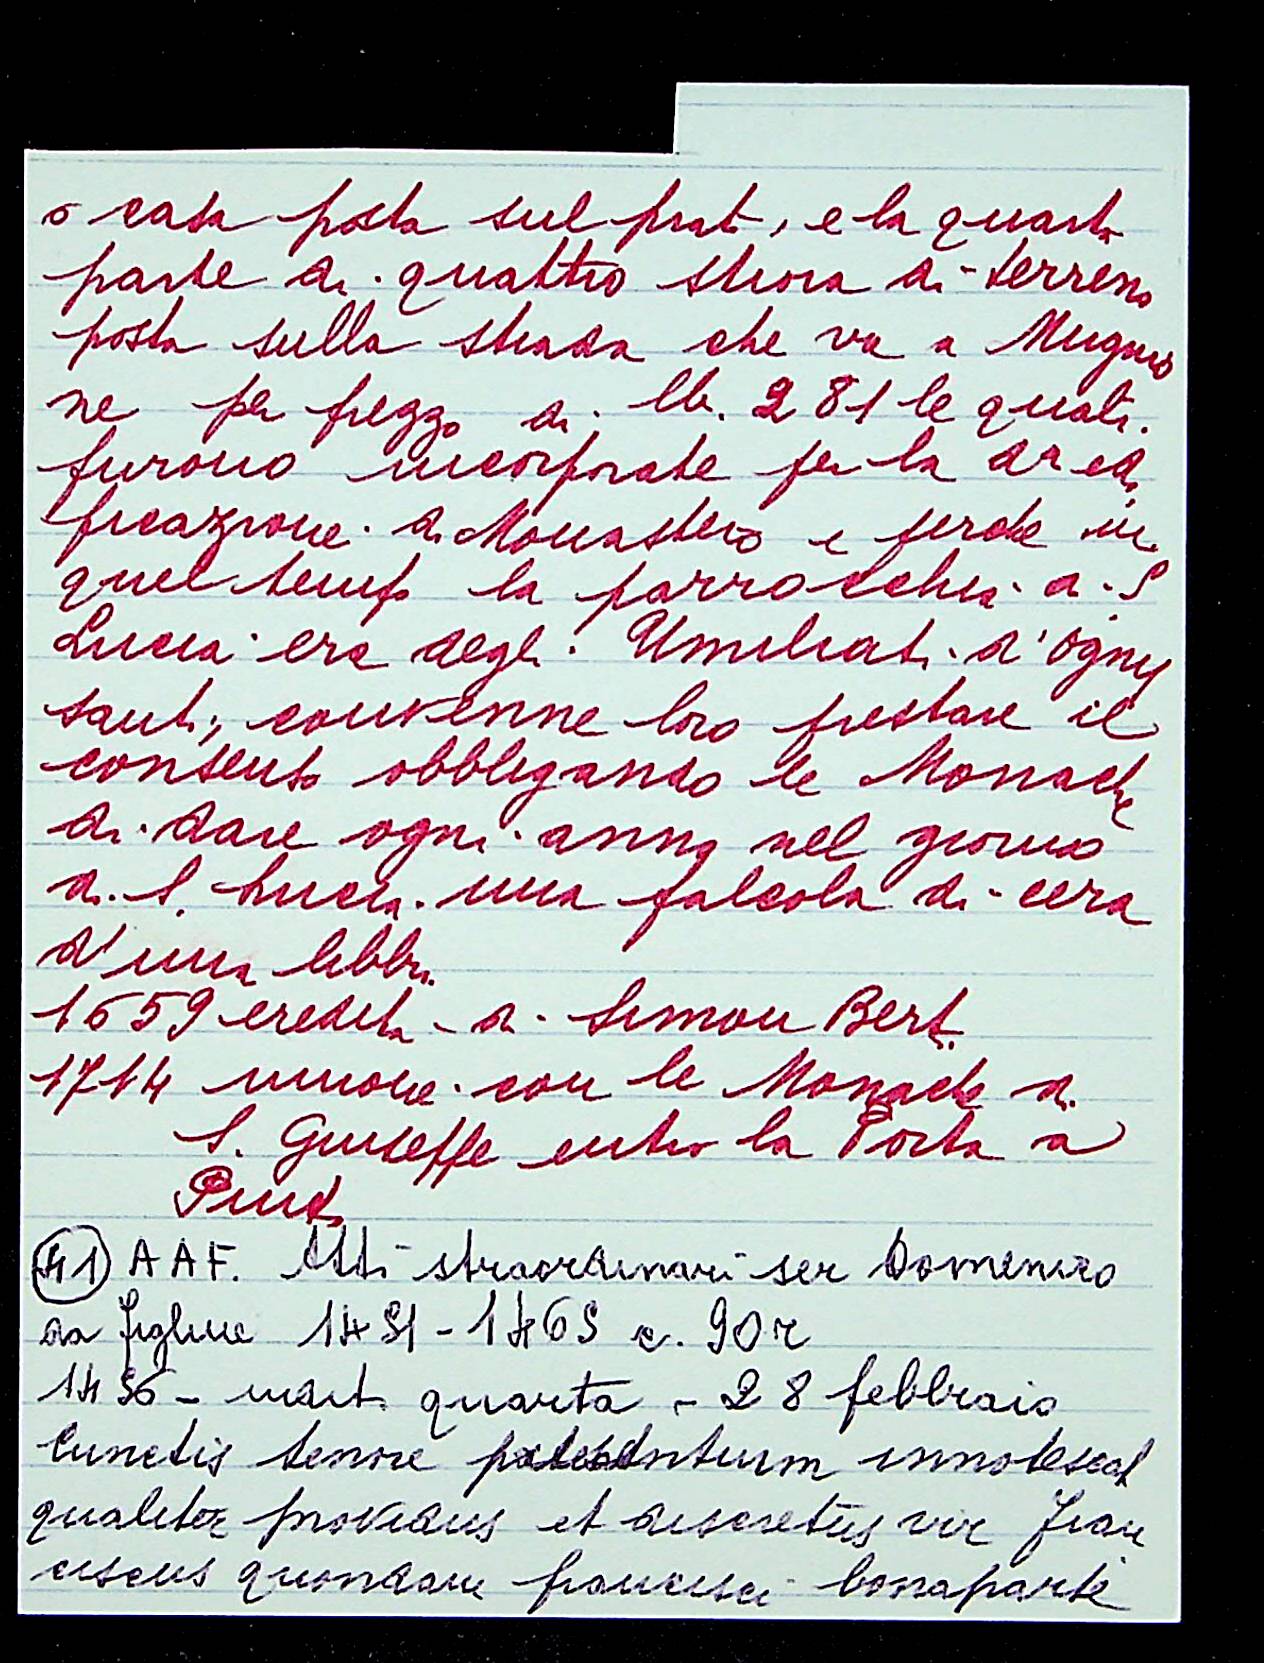 o casa posta sul prato, e la quarta
parte di quattro stiora di terreno
posta sulla strada che va a Mugno
ne per prezzo di lb. 281 le quali
furono incorporate per la di edi
ficazione di Monastero e perche in
quel tempo la parrocchia di S.
Lucia era degli Umiliati d'Ogny
santi, convenne loro prestare il
consenso obbligando le Monache
di dare ogni anno nel giorno
di S. Lucia una falcola di cera
d'una libbra
1659 eredità di Simon Bert..
1714 unione con le Monache di
S. Giuseppe entro la Porta a
Pinti
41 AAF. Atti straordinari ser Domenico
da Figline 1451-1465 c. 90r
1456 - quarta - 28 febbraio
Cunctis tenore presentium innotescat
qualiter providus et discretus vir Fran
ciscus quondam francisci bonaparte